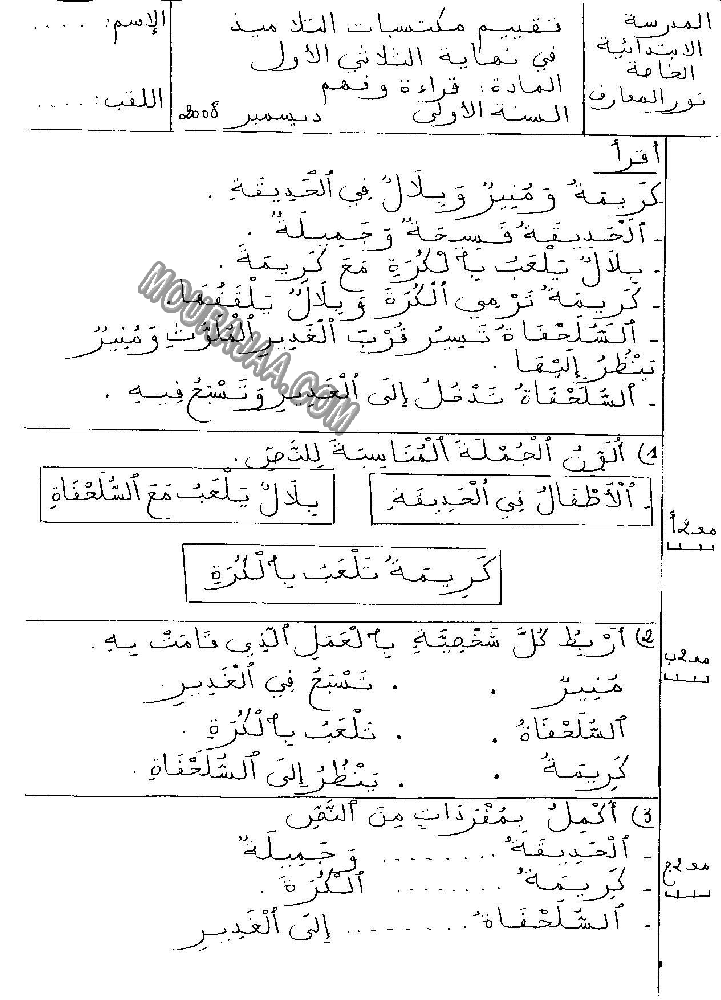 المدرسة
الابتدائية
الخاصة
نور المعارف
تقييم مكتسبات التلاميذ
في نهاية الثلاثي الأول
المادة: قراءة وفهم
السنة الأولى ديسمبر 2008
الإسم: ....
اللقب: ....
أقرأ
كَرِيمَةُ وَمُنِيرٌ وَبِلَالٌ فِي الْحَدِيقَةِ .
- الْحَدِيقَةُ فَسِيحَةٌ وَجَمِيلَةٌ .
- بِلَالٌ يَلْعَبُ بِالْكُرَةِ مَعَ كَرِيمَةَ .
- كَرِيمَةُ تَرْمِي الْكُرَةَ وَبِلَالٌ يَلْقَفُهَا
- السُّلَحْفَاةُ تَسِيرُ قُرْبَ الْغَدِيرِ الْمُلَوَّثِ وَمُنِيرٌ
يَنْظُرُ إِلَيْهَا .
- السُّلَحْفَاةُ تَدْخُلُ إِلَى الْغَدِيرِ وَتَسْبَحُ فِيهِ .
MOURAJAA.COM
1) أُلَوِّنُ الْجُمْلَةَ الْمُنَاسِبَةَ لِلنَّصِّ.
- الْأَطْفَالُ فِي الْحَدِيقَةِ
بِلَالٌ يَلْعَبُ مَعَ السُّلَحْفَاةِ
كَرِيمَةُ تَلْعَبُ بِالْكُرَةِ
مع2أ
2) أَرْبِطُ كُلَّ شَخْصِيَّةٍ بِالْعَمَلِ الَّذِي قَامَتْ بِهِ .
مع2ب
مُنِيرٌ . . تَسْبَحُ فِي الْغَدِيرِ.
السُّلَحْفَاةُ . . تَلْعَبُ بِالْكُرَةِ .
كَرِيمَةُ . . يَنْظُرُ إِلَى السُّلَحْفَاةِ .
3) أُكْمِلُ بِمُفْرَدَاتٍ مِنَ النَّصِّ
- الْحَدِيقَةُ ........ وَجَمِيلَةٌ
مع2ج
- كَرِيمَةُ ........ الْكُرَةَ .
- السُّلَحْفَاةُ ........ إِلَى الْغَدِيرِ